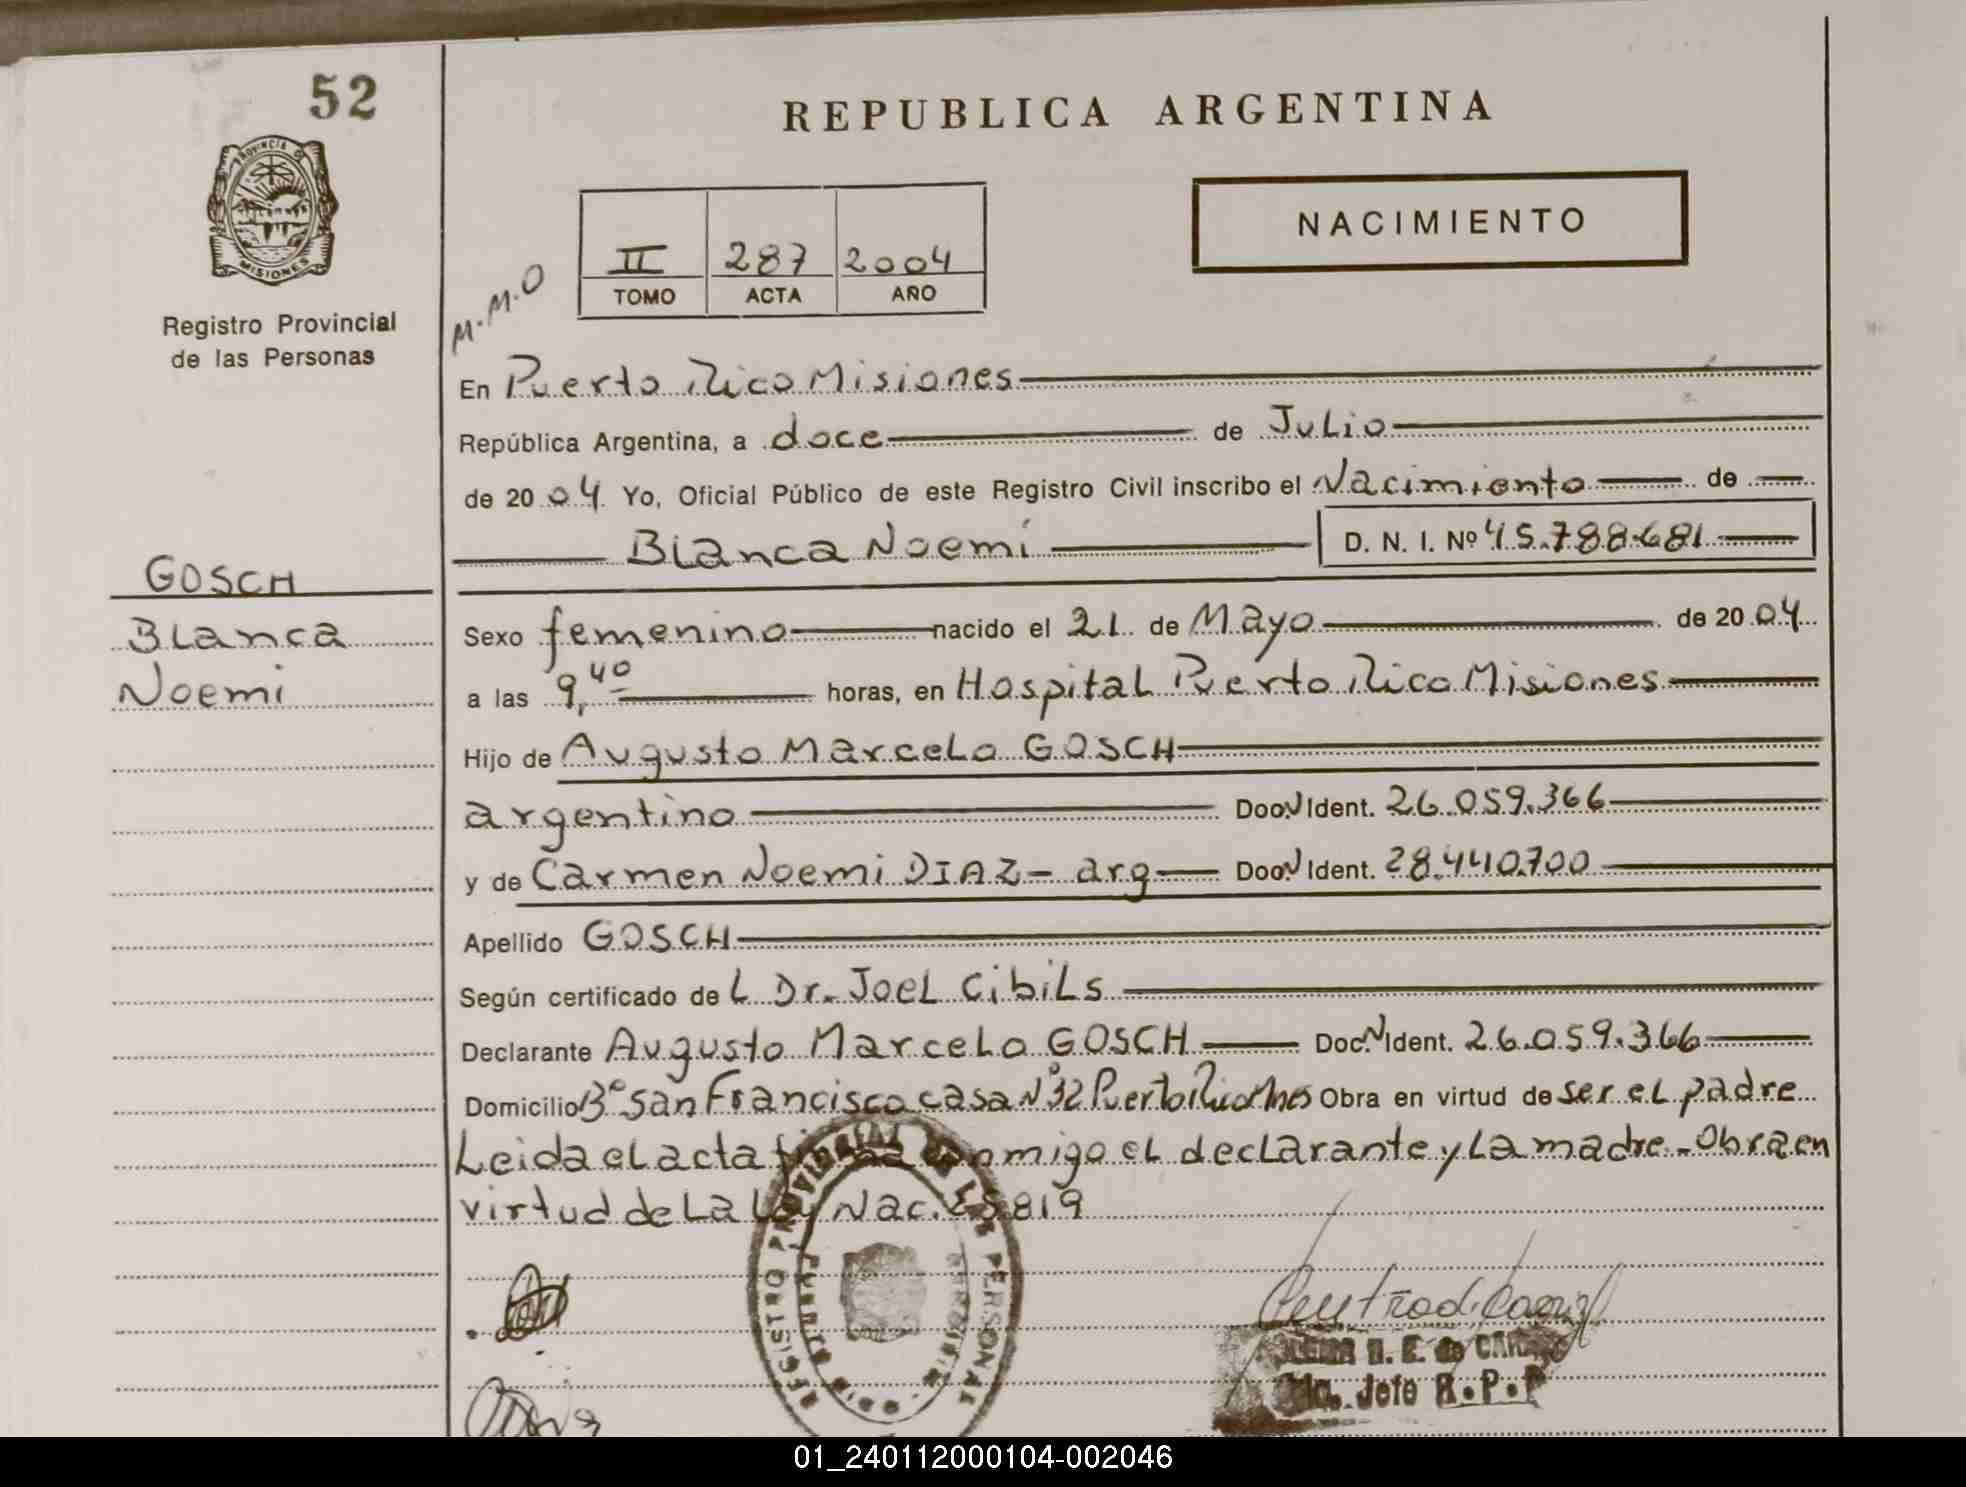 52
REPUBLICA ARGENTINA
PROVINCIA DE
MISIONES
Registro Provincial
de las Personas
NACIMIENTO
II 287 2004
TOMO ACTA AÑO
M.M.O
En Puerto Rico Misiones
República Argentina, a doce de Julio
de 2004 Yo, Oficial Público de este Registro Civil inscribo el Nacimiento de
Blanca Noemí D. N. I. Nº 45.788.681
GOSCH
Blanca
Noemi
Sexo femenino nacido el 21 de Mayo de 2004
a las 9,40 horas, en Hospital Puerto Rico Misiones
Hijo de Augusto Marcelo GOSCH
argentino Doc.N Ident. 26.059.366
y de Carmen Noemi DIAZ - arg Doc.N Ident. 28.440.700
Apellido GOSCH
Según certificado de L Dr. Joel Cibils
Declarante Augusto Marcelo GOSCH Doc.N Ident. 26.059.366
Domicilio Bº San Francisco casa Nº 32 Puerto Rico Mnes Obra en virtud de ser el padre
Leida el acta firma conmigo el declarante y la madre - Obra en
virtud de la Ley Nac. 25819
REGISTRO PROVINCIAL DE LAS PERSONAS
PUERTO RICO
N. E. de
Jefe R.P.P
01_240112000104-002046